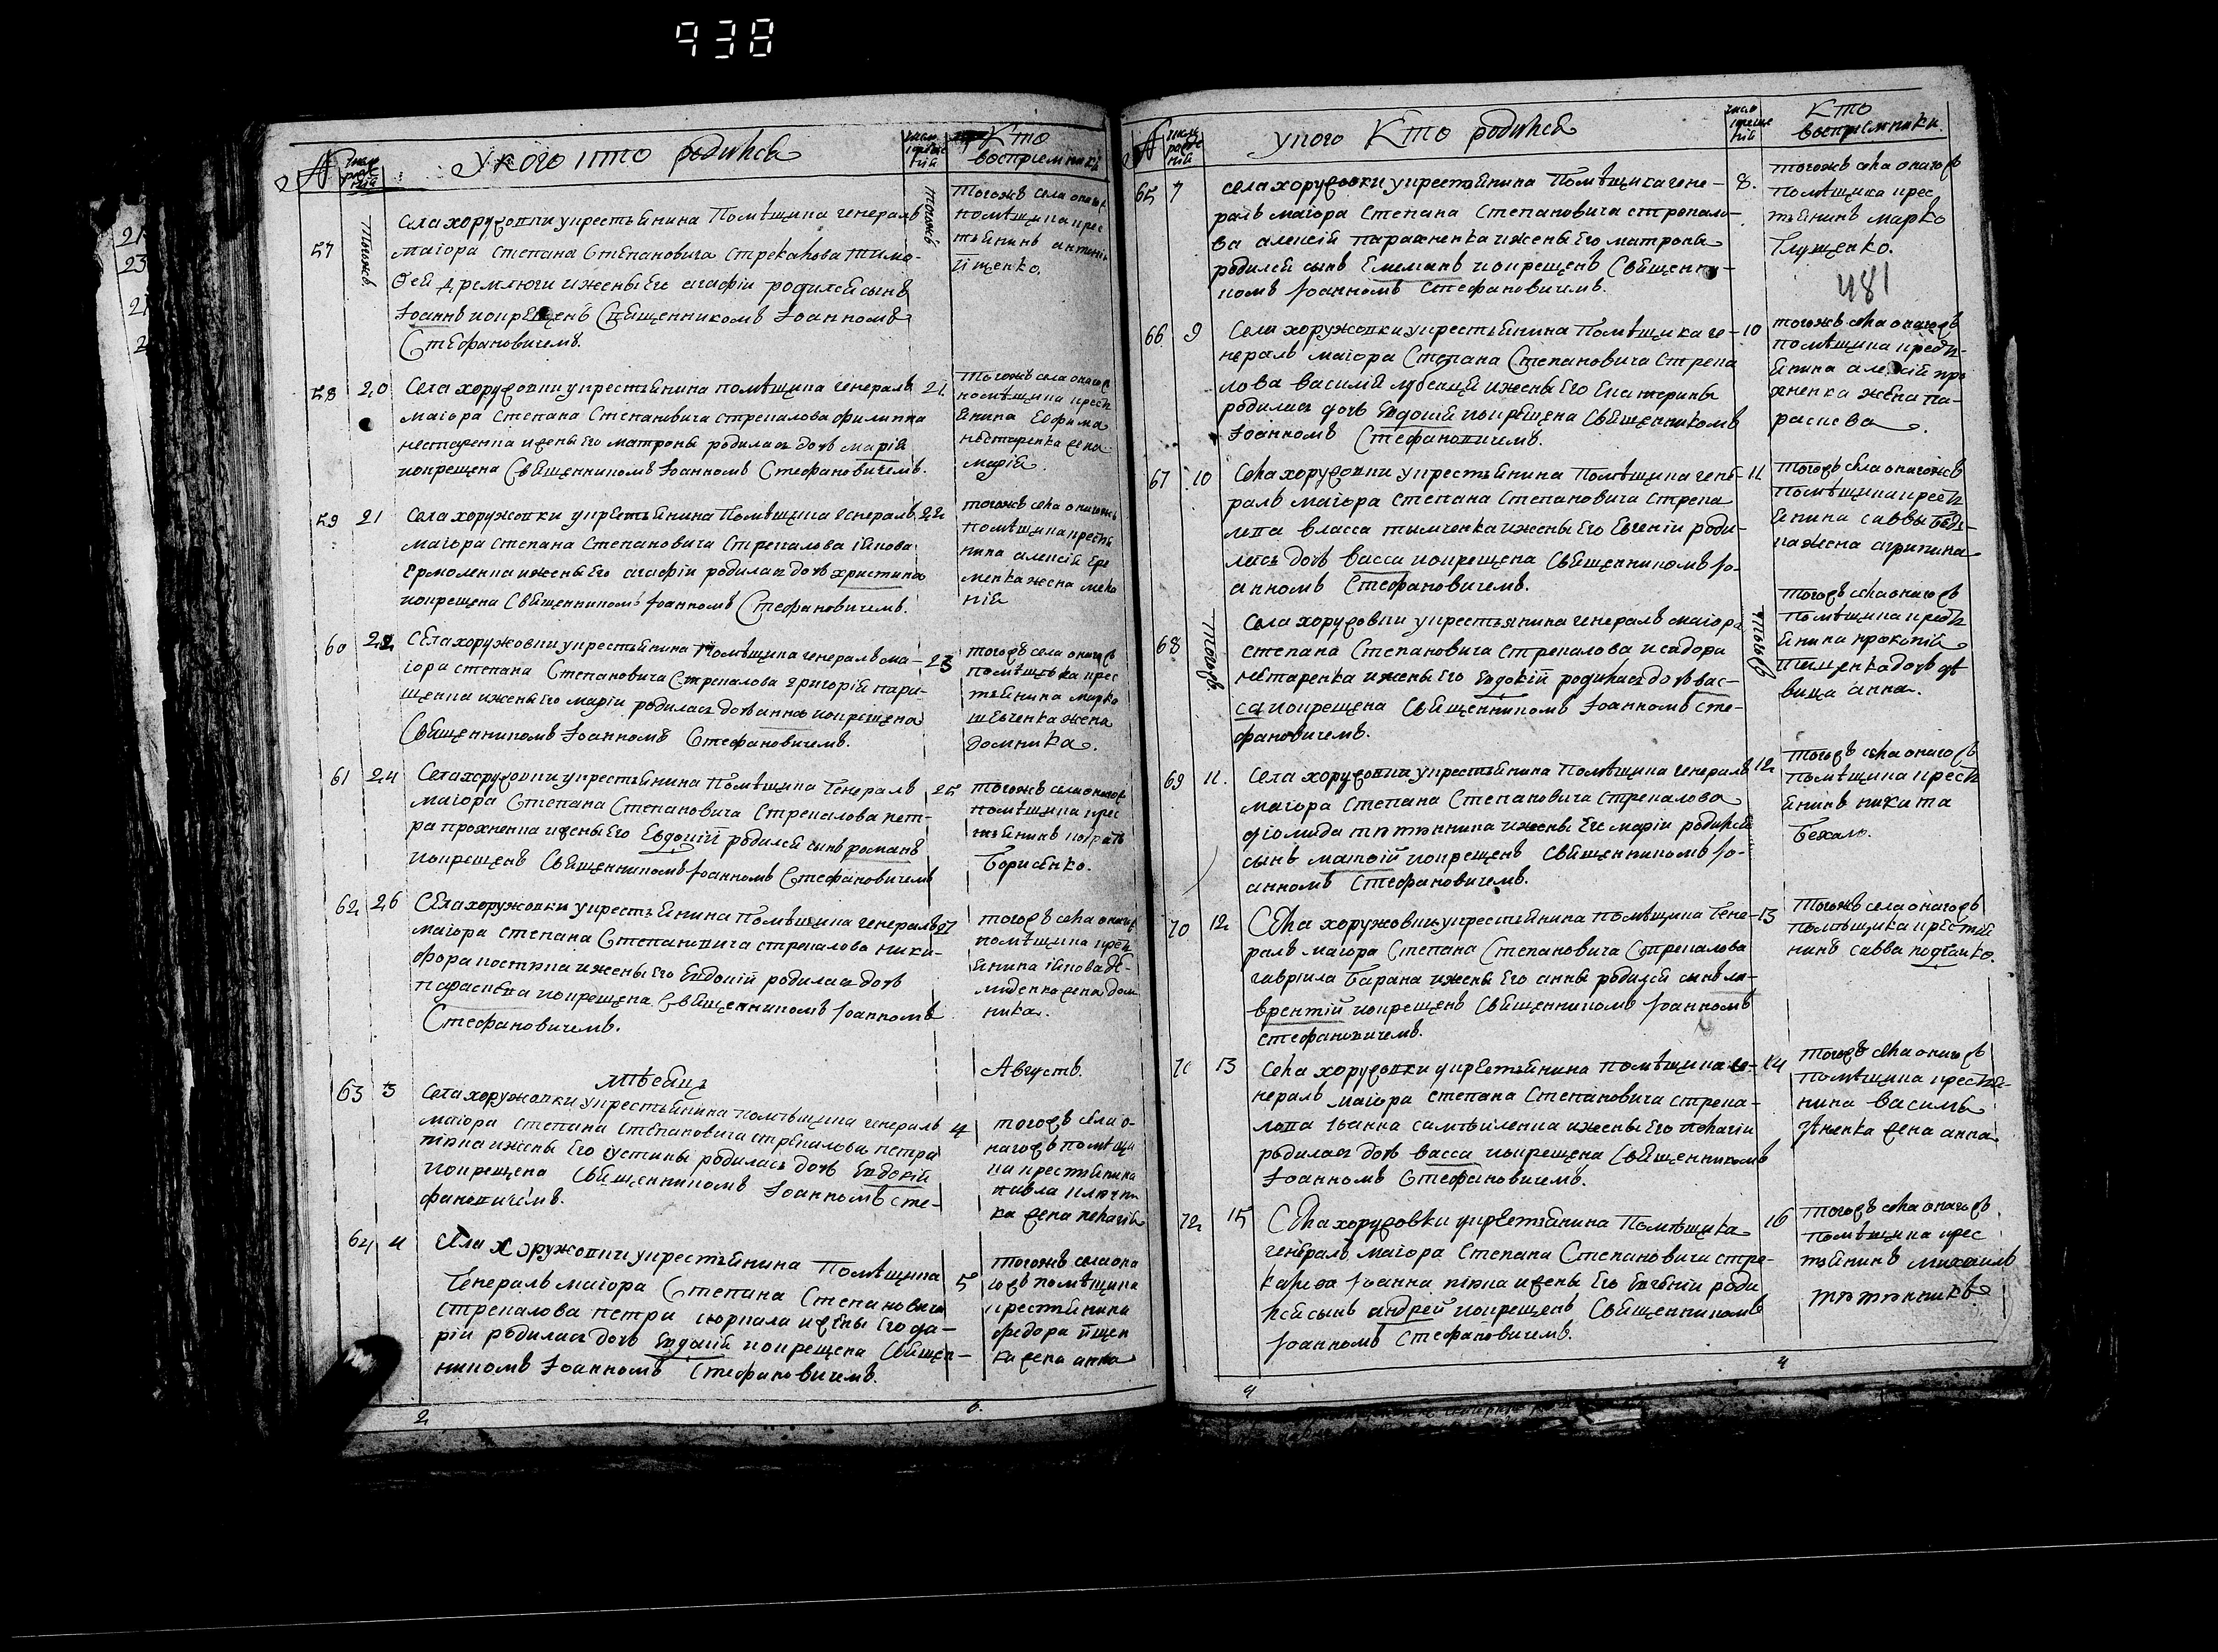 938
№
число рожденій
У кого кто родился
число крещеній
Кто воспріемники
57
тогожъ
Села хоружовки укрестьянина Помѣщика генералъ
маіора степана Степановича Стрекалова тимо-
ѳей дремлюги ижены Его агафіи родился сынъ
Іоаннъ и окрещенъ Священникомъ Іоанномъ
Стефановичемъ.
тогожъ
тогожъ села онаго
помѣщика крес
тьянинъ
йщенко.
58
20
Села хоружовки укрестьянина помѣщика генералъ
маіора степана Степановича стрекалова филиппа
нестеренка ижены Его матроны родилась дочь марія
иокрещена Священникомъ Іоанномъ Стефановичемъ.
21
тогожъ села онаго
помѣщика крест
янина Евфима
нестеренка жена
марія.
59
21
Села хоружовки укрестьянина Помѣщика генералъ
маіора степана Степановича Стрекалова іякова
Ермоленка ижены Его агафіи родилась дочь христина
иокрещена Священникомъ Іоанномъ Стефановичемъ.
22
тогожъ села онагожъ
помѣщика кресть
нина алексій Ере
менка жена мела
нія
60
22
Села хоружовки укрестьянина Помѣщика генералъ ма-
іора степана Степановича Стрекалова григорій пари-
щенка ижены Его маріи родилась дочь анна иокрещена
Священникомъ Іоанномъ Стефановичемъ.
23
тогожъ села онагожъ
помѣщика крес
тьянина марко
шевченка жена
домника.
61
24
Села хоружовки укрестьянина Помѣщика Генералъ
маіора Степана Степановича Стрекалова пет-
ра прохненка ижены Его Евдокій родился сынъ романъ
иокрещенъ Священникомъ Іоанномъ Стефановичемъ
25
тогожъ села онагожъ
помѣщика крес
тьянинъ
Борисенко.
62
26
Села хоружовки укрестьянина Помѣщика генералъ
маіора степана Степановича стрекалова ники-
фора ижены Его Евдокій родилась дочь
параскева иокрещена Священникомъ Іоанномъ
Стефановичемъ.
27
тогожъ села онагожъ
помѣщика крест
янина іякова де-
миденка жена дом
ника.
мѣсяцъ
Августъ.
63
3
Села хоружовки укрестьянина помѣщика генералъ
маіора степана степановича стрекалова петра
ижены Его іустины родилась дочь Евдокій
иокрещена Священникомъ Іоанномъ Сте-
фановичемъ.
4
тогожъ села о-
нагожъ помѣщи
ка крестьянина
павла ключни
ка жена пелагія
64
4
Села хоружовки укрестьянина Помѣщика
Генералъ маіора Степана Степановича
стрекалова петра сюркала ижены Его да-
рій родилась дочь Евдокій иокрещена Священ-
никомъ Іоанномъ Стефановичемъ.
5
тогожъ села она
гожъ помѣщика
крестьянина
федора йщен
ка жена анна
2
6.
№
число рожденій
У кого Кто родился
число крещеній
Кто
воспріемники.
65
7
села хоружовки укрестьянина Помѣщика гене-
ралъ маіора степана Степановича стрекало-
ва алексій парахненка ижены Его матроны
родился сынъ Емеліанъ иокрещенъ Священни-
комъ Іоанномъ Стефановичемъ.
8.
тогожъ села онагожъ
Помѣщика крес
тьянинъ марко
Глущенко.
481
66
9
Села хоружовки укрестьянина Помѣщика ге-
нералъ маіора Степана Степановича Стрека
лова василій ижены Его Екатерины
родилась дочь Евдокій иокрещена Священникомъ
Іоанномъ Стефановичемъ.
10
тогожъ села онагожъ
помѣщика крест-
янина алексій про
хненка жена па-
раскева.
67
10
Села хоружовки укрестьянина Помѣщика гене-
ралъ маіора степана Степановича Стрека
лова власса тимченка ижены Его Евгеніи роди-
лась дочь васса иокрещена Священникомъ Іо-
анномъ Стефановичемъ.
11
тогожъ села онагожъ
помѣщика крест
янина саввы
жена агрипина
68
тогожъ
Села хоружовки укрестьянина генералъ маіора
степана Степановича Стрекалова исидора
нестаренка ижены Его Евдокій родилась дочь вас-
са иокрещена Священникомъ Іоанномъ Сте-
фановичемъ.
тогожъ
тогожъ села онагожъ
помѣщика крест
янина прокопій
тищенка дочь дѣ
вица анна.
69
11.
Села хоружовки укрестьянина Помѣщика генералъ
маіора степана Степановича стрекалова
діомида ижены Его маріи родился
сынъ матѳій иокрещенъ Священникомъ Іо-
анномъ Стефановичемъ.
12
тогожъ села онагожъ
помѣщика крест
янинъ никита
Бехало.
70
12
Села хоружовки укрестьянина помѣщика Гене-
ралъ маіора Степана Степановича Стрекалова
гавріила Барана ижены Его анны родился сынъ ла-
врентій иокрещенъ Священникомъ Іоанномъ
Стефановичемъ.
13
тогожъ села онагожъ
Помѣщика крестья
нинъ савва
71
13
Села хоружовки укрестьянина помѣщика ге-
нералъ маіора степана Степановича стрека-
лова іоанна самойленка ижены Его пелагіи
родилась дочь васса иокрещена Священникомъ
Іоанномъ Стефановичемъ.
14
тогожъ села онагожъ
помѣщика крестья-
нина василія
жена анна
72
15
Села хоружовки укрестьянина Помѣщика
генералъ маіора Степана Степановича стре-
калова Іоанна ижены Его Евгеніи роди
лся сынъ андрей иокрещенъ Священникомъ
Іоанномъ Стефановичемъ.
16
тогожъ села онагожъ
помѣщика крес
тьянинъ михаилъ
4
4